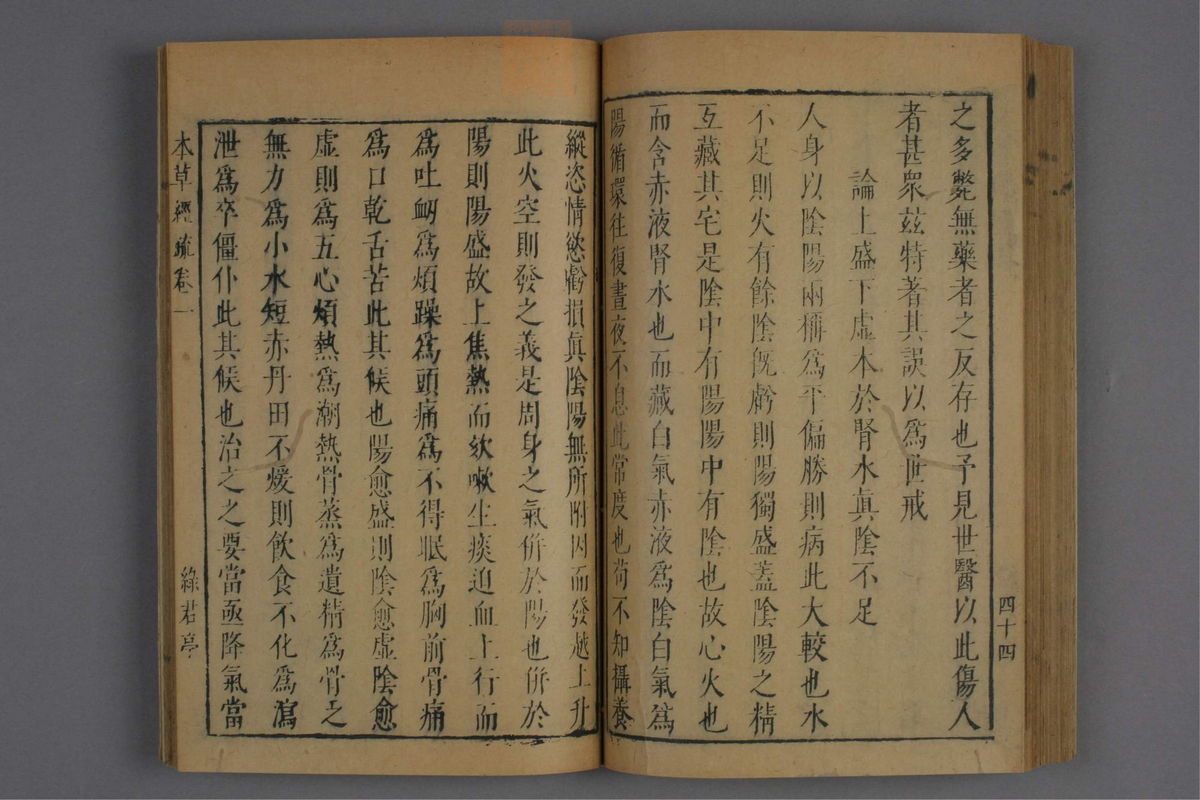 四十四
之多斃無藥者之反存也予見世醫以此傷人
者甚衆茲特著其誤以爲世戒
論上盛下虛本於腎水眞陰不足
人身以陰陽兩稱爲平偏勝則病此大較也水
不足則火有餘陰旣虧則陽獨盛蓋陰陽之精
互藏其宅是陰中有陽陽中有陰也故心火也
而含赤液腎水也而藏白氣赤液爲陰白氣爲
陽循環往復晝夜不息此常度也苟不知攝養
縱恣情慾虧損眞陰陽無所附因而發越上升
此火空則發之義是周身之氣併於陽也併於
陽則陽盛故上焦熱而欬嗽生痰迫血上行而
爲吐衂爲煩躁爲頭痛爲不得眠爲胸前骨痛
爲口乾舌苦此其候也陽愈盛則陰愈虛陰愈
虛則爲五心煩熱爲潮熱骨蒸爲遺精爲骨乏
無力爲小水短赤丹田不煖則飲食不化爲瀉
泄爲卒僵仆此其候也治之之要當亟降氣當
本草經疏卷一
綠君亭